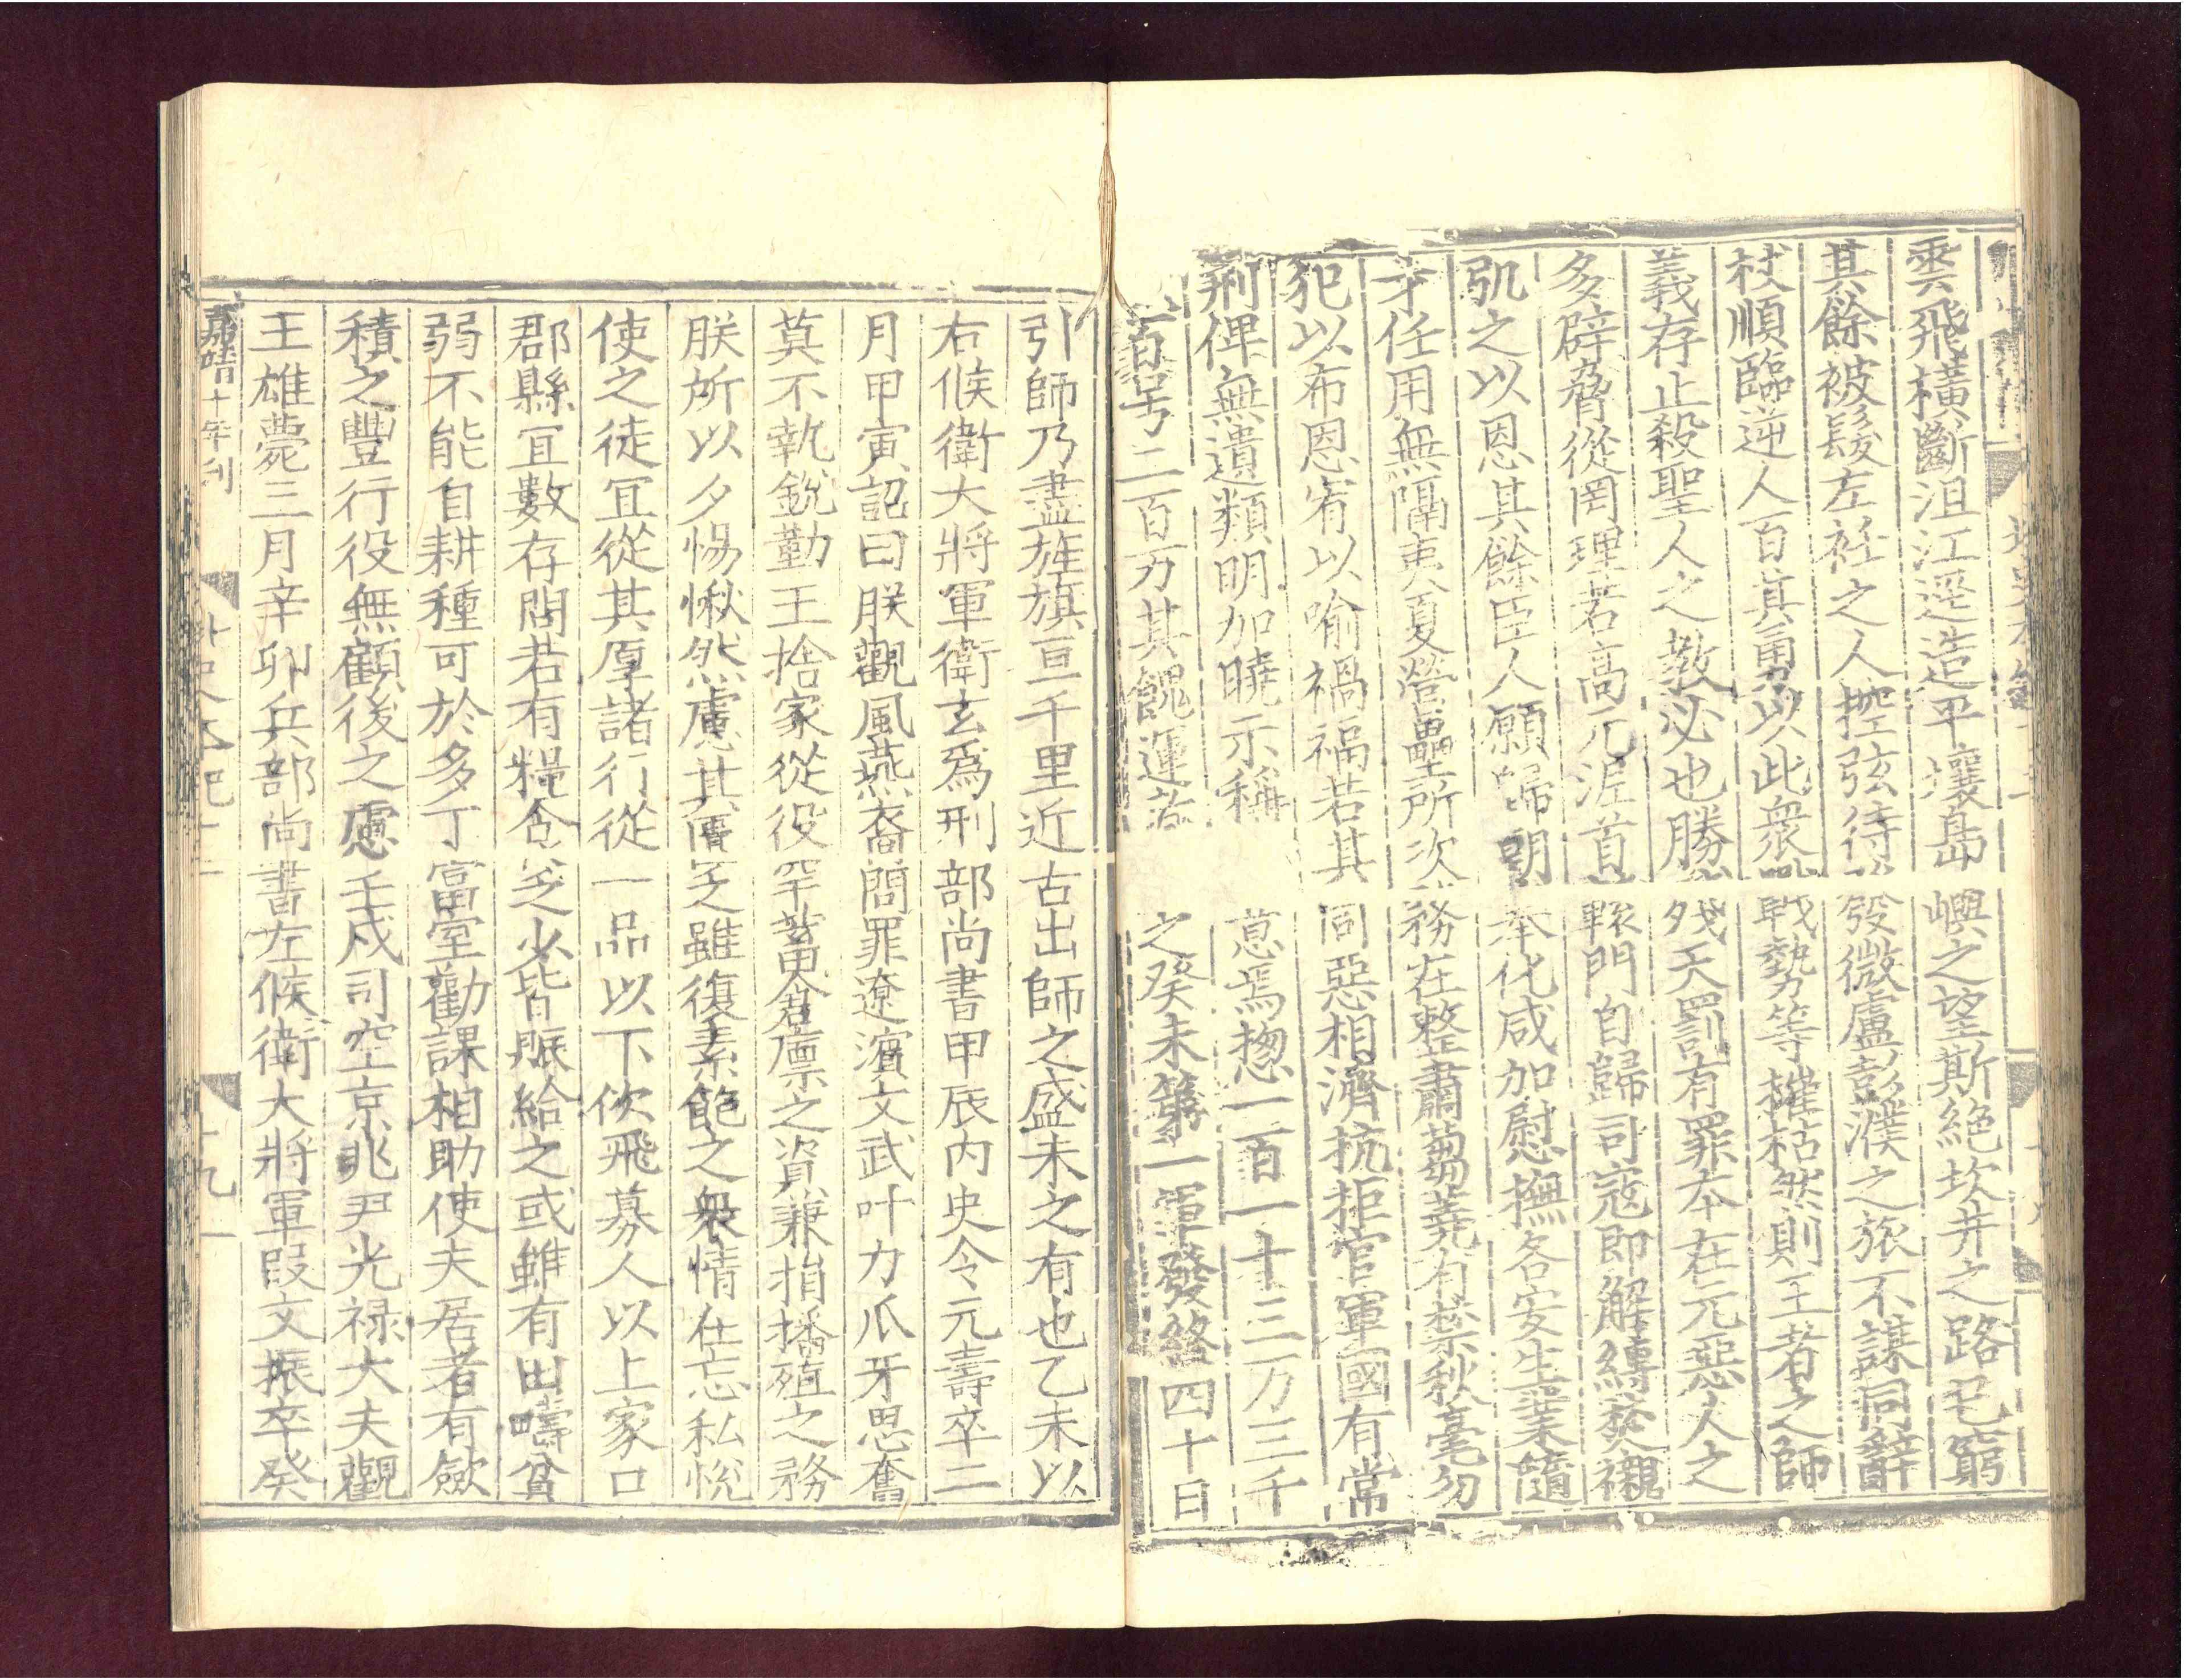 雲飛橫斷沮江逕造平壤島嶼之望斯絶坎井之路已窮
其餘被髮左衽之人控弦待發微盧彭濮之旅不謀同辭
杖順臨逆人百其勇以此衆戰勢等摧枯然則王者之師
義存止殺聖人之教必也勝殘天罰有罪本在元惡人之
多辟脅從罔理若高元泥首轅門自歸司寇即解縛焚櫬
弘之以恩其餘臣人願歸朝奉化咸加慰撫各安生業隨
才任用無隔夷夏營壘所次務在整肅芻蕘有禁秋毫勿
犯以布恩宥以喻禍福若其同惡相濟抗拒官軍國有常
刑俾無遺類明加曉示稱意焉揔一百一十三万三千
百号二百万其餽運
之癸未第一軍發終四十日
引師乃盡旌旗亘千里近古出師之盛未之有也乙未以
右候衛大將軍衛玄爲刑部尚書甲辰内史令元壽卒二
月甲寅詔曰朕觀風燕裔問罪遼濱文武叶力爪牙思奮
莫不執銳勤王捨家從役罕蓄倉廪之資兼捐播殖之務
朕所以夕惕愀然慮其匱乏雖復素飽之衆情在忘私悅
使之徒冝從其厚諸行從一品以下佽飛募人以上家口
郡縣冝數存問若有糧食乏少皆賑給之或雖有田疇貧
弱不能自耕種可於多丁富室勸課相助使夫居者有斂
積之豐行役無顧後之慮壬戌司空京兆尹光禄大夫觀
王雄薨三月辛卯兵部尚書左候衛大將軍段文振卒癸
嘉靖十年刊
十九